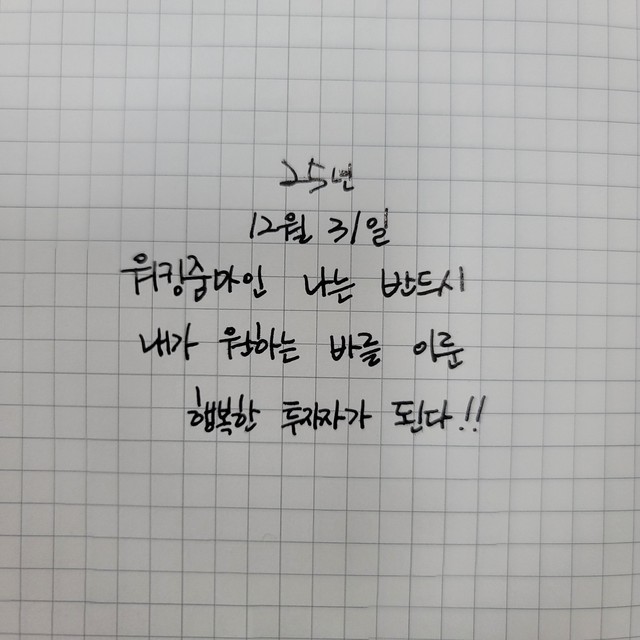 25년
12월 31일
워킹줌마인 나는 반드시
내가 원하는 바를 이룬
행복한 투자자가 된다!!